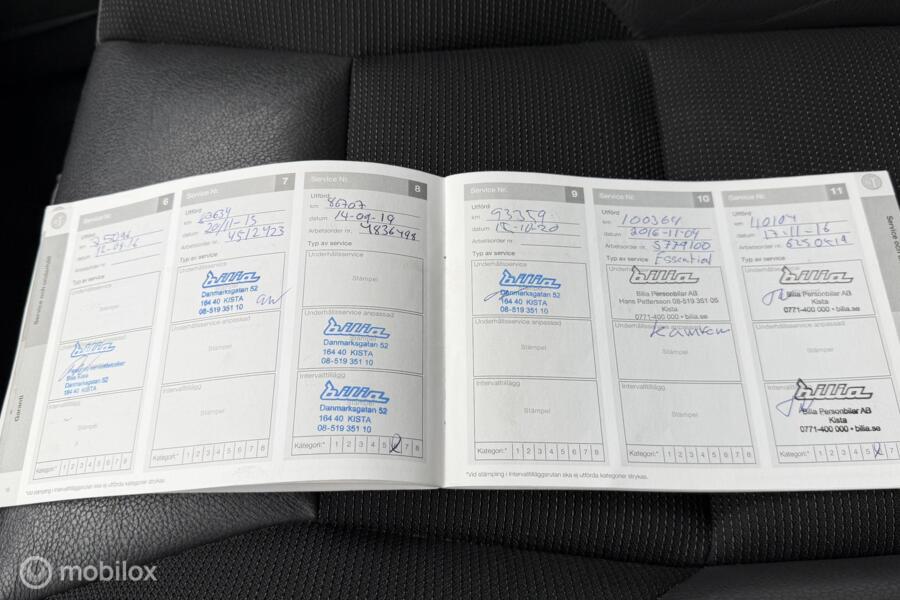 Service och underhåll
Garanti
6
Utförd
km
datum
Arbetsorder nr.
Typ av service
Underhållsservice
Stämpel
Underhållsservice anpassad
bilia
Bilia Kista
Danmarksgatan 52
164 40 KISTA
Intervalltillägg
Stämpel
Kategori:* 1 2 3 4 5 6 7 8
Service Nr. 7
Utförd
km 63634
datum 20/11-13
Arbetsorder nr. 4512423
Typ av service
Underhållsservice
bilia
Danmarksgatan 52
164 40 KISTA
08-519 351 10
Underhållsservice anpassad
Stämpel
Intervalltillägg
Stämpel
Kategori:* 1 2 3 4 5 6 7 8
Service Nr. 8
Utförd
km 86707
datum 14-09-19
Arbetsorder nr. 4836498
Typ av service
Underhållsservice
Stämpel
Underhållsservice anpassad
bilia
Danmarksgatan 52
164 40 KISTA
08-519 351 10
Intervalltillägg
bilia
Danmarksgatan 52
164 40 KISTA
08-519 351 10
Kategori:* 1 2 3 4 5 6 7 8
*Vid stämpling i Intervalltilläggsrutan ska ej utförda kategorier strykas.
Service Nr. 9
Utförd
km 93359
datum 15-10-20
Arbetsorder nr.
Typ av service
Underhållsservice
bilia
Danmarksgatan 52
164 40 KISTA
08-519 351 10
Underhållsservice anpassad
Stämpel
Intervalltillägg
Stämpel
Kategori:* 1 2 3 4 5 6 7 8
*Vid stämpling i Intervalltilläggsrutan ska ej utförda kategorier strykas.
Service Nr. 10
Utförd
km 100364
datum 2016-11-04
Arbetsorder nr. 5779100
Typ av service Essential
Underhållsservice
bilia
Bilia Personbilar AB
Hans Pettersson 08-519 351 05
Kista
0771-400 000 • bilia.se
Underhållsservice anpassad
Stämpel
Intervalltillägg
Stämpel
Kategori:* 1 2 3 4 5 6 7 8
Service Nr. 11
Utförd
km
datum 17-11-16
Arbetsorder nr. 6250519
Typ av service
Underhållsservice
bilia
Bilia Personbilar AB
Kista
0771-400 000 • bilia.se
Underhållsservice anpassad
Stämpel
Intervalltillägg
bilia
Bilia Personbilar AB
Kista
0771-400 000 • bilia.se
Kategori:* 1 2 3 4 5 6 7 8
mobilox